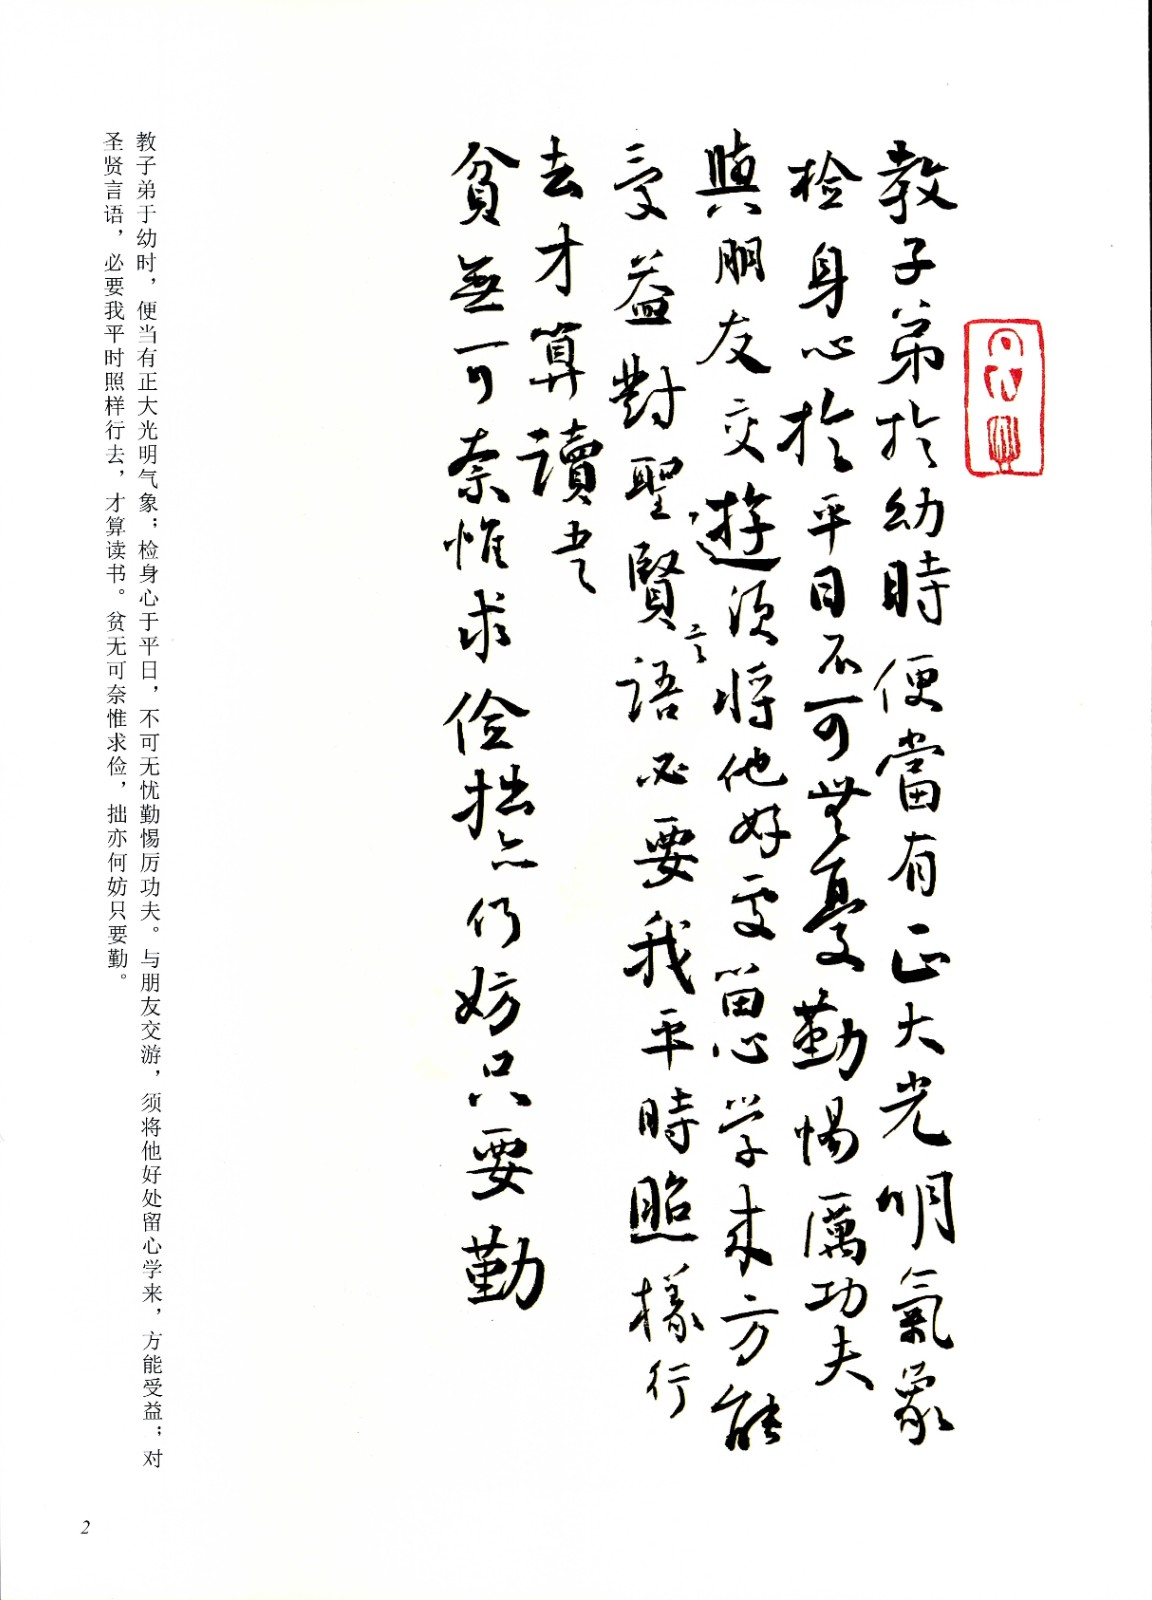 教子弟於幼時便當有正大光明氣象
检身心於平日不可無憂勤惕厲功夫
與朋友交遊須将他好处留心学来方能
受益對聖賢言語必要我平時照樣行
去才算讀书
貧無可奈惟求儉拙亦何妨只要勤
教子弟于幼时，便当有正大光明气象；检身心于平日，不可无忧勤惕厉功夫。与朋友交游，须将他好处留心学来，方能受益；对
圣贤言语，必要我平时照样行去，才算读书。贫无可奈惟求俭，拙亦何妨只要勤。
2